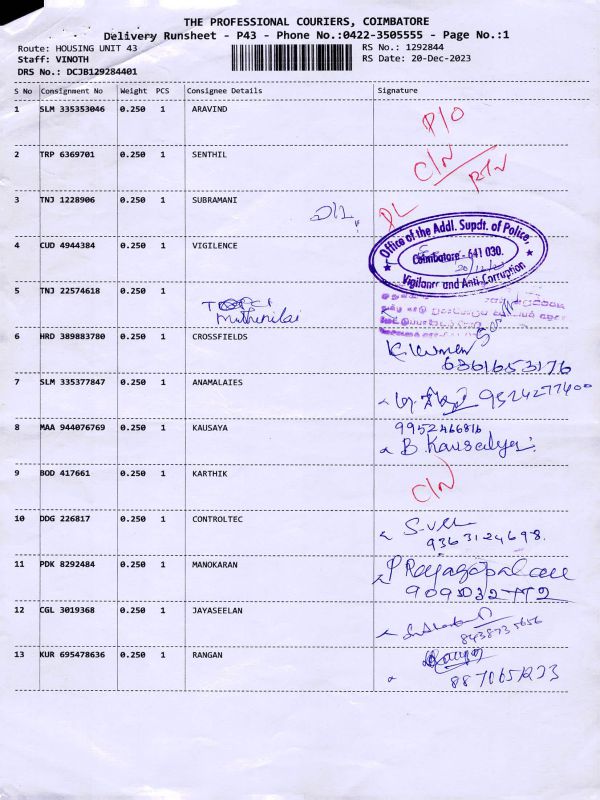 THE PROFESSIONAL COURIERS, COIMBATORE
Delivery Runsheet - P43 - Phone No.:0422-3505555 - Page No.:1
Route: HOUSING UNIT 43 RS No.: 1292844
Staff: VINOTH RS Date: 20-Dec-2023
DRS No.: DCJB129284401
S No Consignment No Weight PCS Consignee Details Signature
1 SLM 335353046 0.250 1 ARAVIND P/O
2 TRP 6369701 0.250 1 SENTHIL C/N
3 TNJ 1228906 0.250 1 SUBRAMANI DL
Office of the Addl. Supdt. of Police,
4 CUD 4944384 0.250 1 VIGILENCE Coimbatore - 641 030.
Vigilance and Anti-Corruption
5 TNJ 22574618 0.250 1
Muthinilai
6 HRD 389883780 0.250 1 CROSSFIELDS K. Kumar
6361653176
7 SLM 335377847 0.250 1 ANAMALAIES 9524277400
8 MAA 944076769 0.250 1 KAUSAYA 9952466816
B. Kausalya
9 BOD 417661 0.250 1 KARTHIK C/N
10 DDG 226817 0.250 1 CONTROLTEC
9363124698.
11 PDK 8292484 0.250 1 MANOKARAN P Rajagopalan
12 CGL 3019368 0.250 1 JAYASEELAN
8438735656
13 KUR 695478636 0.250 1 RANGAN